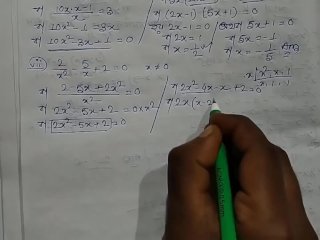 বা 10x·x-1 / x = 3
বা 10x²-1 = 3x
বা 10x²-3x-1 = 0
বা (2x-1)(5x+1) = 0
হয় 2x-1 = 0
বা 2x = 1
বা x = 1/2
5x+1 = 0
বা 5x = -1
বা x = -1/5
(vii) 2/x² - 5/x + 2 = 0 x ≠ 0
বা 2-5x+2x² / x² = 0
বা 2x²-5x+2 = 0×x²
বা 2x²-5x+2 = 0
বা 2x²-4x-x+2 = 0
বা 2x(x-2